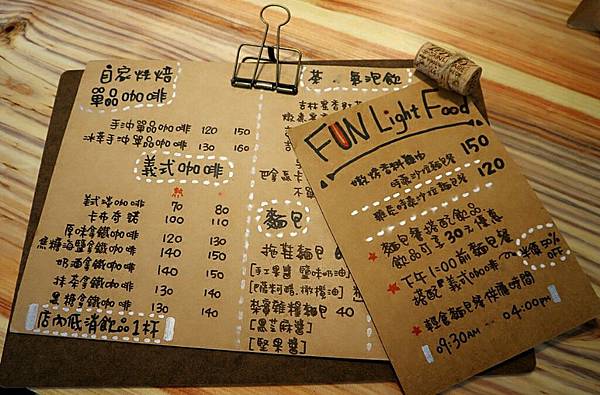 自家烘焙
單品咖啡
手沖單品咖啡 120 150
冰幸手沖單品咖啡 130 160
義式咖啡
熱
義式濃咖啡 70 80
卡布奇諾 100 110
原味拿鐵咖啡 120 130
焦糖海鹽拿鐵咖啡 140 150
奶酒拿鐵咖啡 140 150
抹茶拿鐵咖啡 130 140
黑糖拿鐵咖啡 130 140
店內低消飲品1杯
茶．氣泡飲
麵包
拖鞋麵包 6
[手工果醬 鹽味奶油]
[橄欖油]
桑甚雜糧麵包 40
[黑芝麻醬]
[堅果醬]
FUN Light Food
嫩烤香料雞胸
時蔬沙拉麵包餐 150
時蔬沙拉麵包餐 120
麵包餐搭配飲品
飲品可享30元優惠
下午1:00前麵包餐
搭配 義式咖啡 半價50%
OFF
輕食麵包餐供應時間
09:30AM — 04:00pm